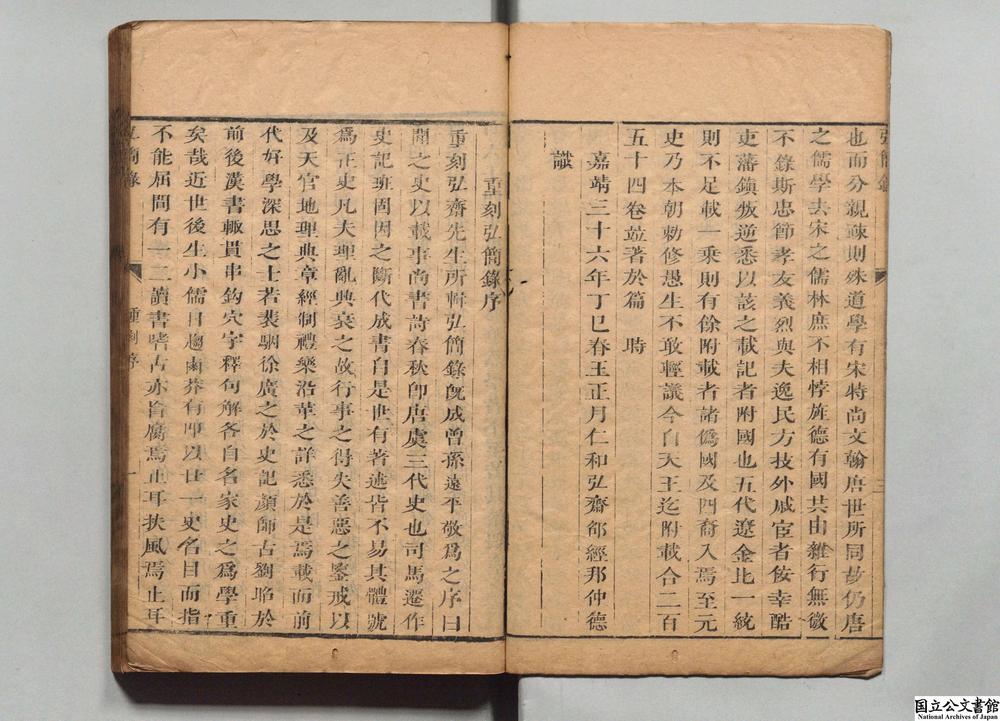 弘簡錄
也而分親疎則殊道學有宋特尚文翰唐世所同故仍唐
之儒學去宋之儒林庶不相悖旌德有國共由雜行無徵
不錄斯忠節孝友義烈與夫逸民方技外戚宦者佞幸酷
吏藩鎮叛逆悉以該之載記者附國也五代遼金比一統
則不足載一乘則有餘附載者諸僞國及四裔入焉至元
史乃本朝勅修愚生不敢輕議今自天王迄附載合二百
五十四卷竝著於篇 時
嘉靖三十六年丁巳春王正月仁和弘齋邵經邦仲德
識
重刻弘簡錄序
重刻弘齋先生所輯弘簡錄旣成曾孫遠平敬爲之序曰
聞之史以載事尚書詩春秋卽唐虞三代史也司馬遷作
史記班固因之斷代成書自是世有著述皆不易其體號
爲正史凡夫理亂興衰之故行事之得失善惡之鑒戒以
及天官地理典章經制禮樂沿革之詳悉於是焉載而前
代好學深思之士若裴駰徐廣之於史記顏師古劉昭於
前後漢書輒貫串鈎穴字釋句解各自名家史之爲學重
矣哉近世後生小儒日趨鹵莽有叩以廿一史名目而指
不能屈間有一二讀書嗜古亦旨腐焉止耳挾風焉止耳
簡錄
重刻序
一
国立公文書館
National Archives of Japan